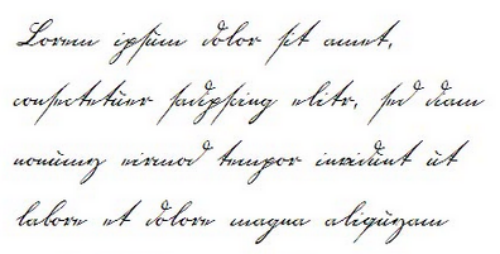 Lorem ipsum dolor sit amet,
consectetuer sadipscing elitr, sed diam
nonumy eirmod tempor invidunt ut
labore et dolore magna aliquyam